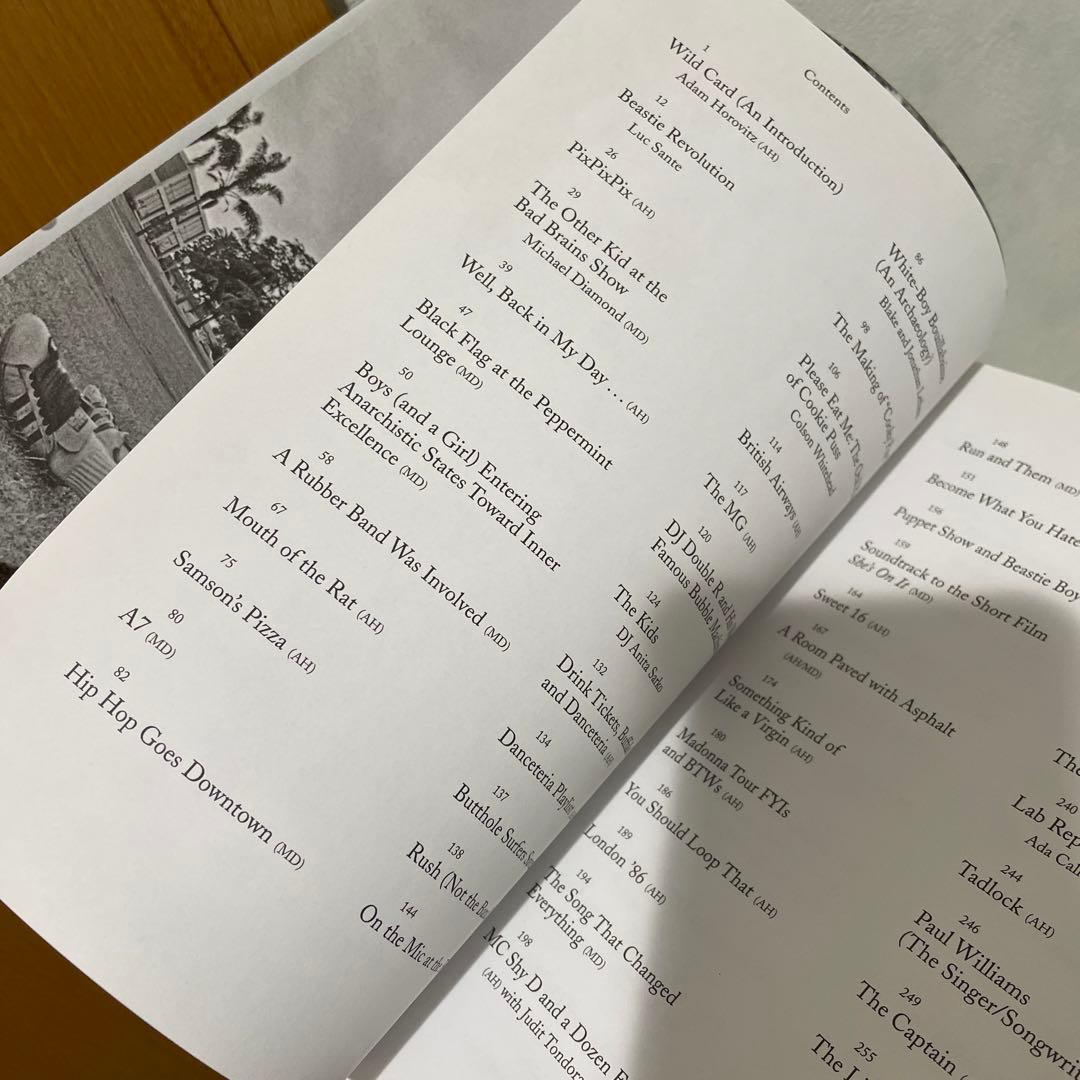 Contents
1
Wild Card (An Introduction)
Adam Horovitz (AH)
12
Beastie Revolution
Luc Sante
26
PixPixPix (AH)
29
The Other Kid at the
Bad Brains Show
Michael Diamond (MD)
39
Well, Back in My Day . . . (AH)
47
Black Flag at the Peppermint
Lounge (MD)
50
Boys (and a Girl) Entering
Anarchistic States Toward Inner
Excellence (MD)
58
A Rubber Band Was Involved (MD)
67
Mouth of the Rat (AH)
75
Samson's Pizza (AH)
80
A7 (MD)
82
Hip Hop Goes Downtown (MD)
86
White-Boy Bouillabaisse
(An Archaeology)
Blake and Jonathan
98
The Making of "Cooky
106
Please Eat Me: The
of Cookie Puss
Colson Whitehead
114
British Airways (AH)
117
The MG (AH)
120
DJ Double R and
Famous Bubble
124
The Kids
DJ Anita Sarko
132
Drink Tickets,
and Danceteria (AH)
134
Danceteria Playlist
137
Butthole Surfers
138
Rush (Not the
144
On the Mic at the
148
Run and Them (MD)
151
Become What You Hate
156
Puppet Show and Beastie Boy
159
Soundtrack to the Short Film
She's On It (MD)
164
Sweet 16 (AH)
167
A Room Paved with Asphalt
(AH/MD)
174
Something Kind of
Like a Virgin (AH)
180
Madonna Tour FYIs
and BTWs (AH)
186
You Should Loop That (AH)
189
London '86 (AH)
194
The Song That Changed
Everything (MD)
198
MC Shy D and a Dozen
(AH) with Judit Tondora
240
Lab Rep
Ada Cal
244
Tadlock (AH)
246
Paul Williams
(The Singer/Songwri
249
The Captain
255
The